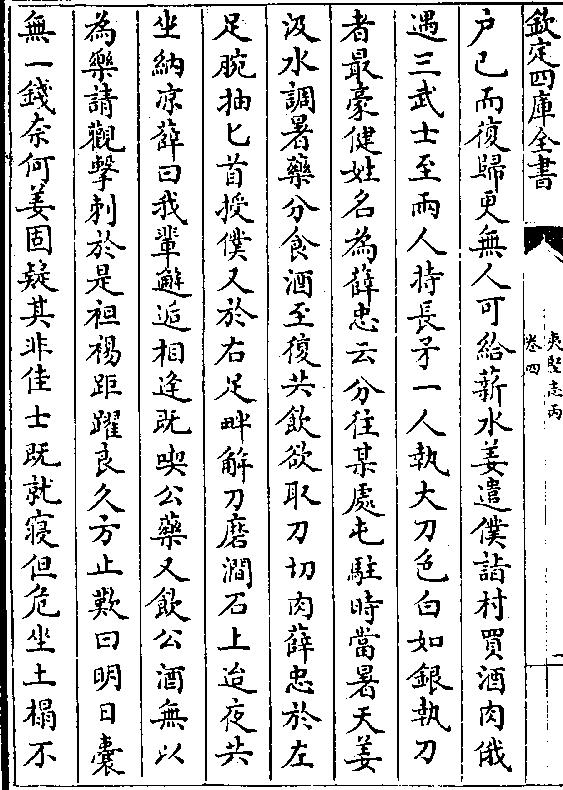 欽定四庫全書
夷堅志丙
卷四
一
户已而復歸更無人可給薪水姜遣僕詣村買酒肉俄
遇三武士至兩人持長矛一人執大刀色白如銀執刀
者最豪健姓名為薛忠云分往某處屯駐時當暑天姜
汲水調暑藥分食酒至復共飲欲取刀切肉薛忠於左
足腕抽匕首授僕又於右足畔解刀磨澗石上迨夜共
坐納凉薛曰我輩邂逅相逢既喫公藥又飲公酒無以
為樂請觀擊刺於是袒裼距躍良久方止歎曰明日囊
無一錢奈何姜固疑其非佳士既就寢但危坐土榻不